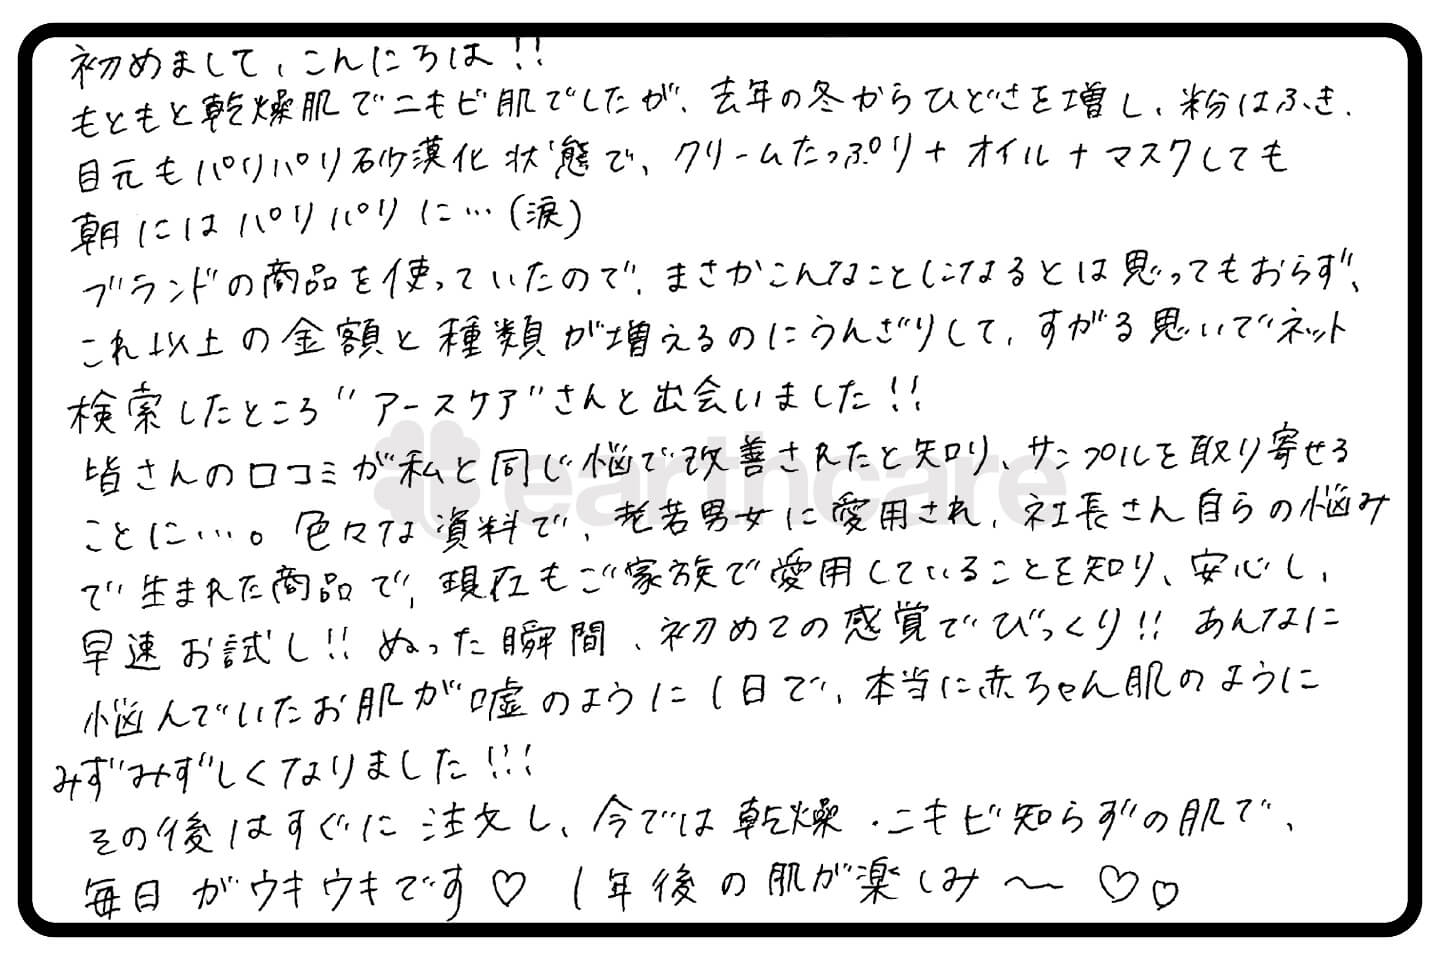 初めまして、こんにちは!!
もともと乾燥肌でニキビ肌でしたが、去年の冬からひどさを増し、粉はふき、
目元もパリパリ砂漠化状態で、クリームたっぷり+オイル+マスクしても
朝にはパリパリに…(涙)
ブランドの商品を使っていたので、まさかこんなことになるとは思ってもおらず、
これ以上の金額と種類が増えるのにうんざりして、すがる思いでネット
検索したところ"アースケア"さんと出会いました!!
皆さんの口コミが私と同じ悩で改善されたと知り、サンプルを取り寄せる
earthcare
ことに…。色々な資料で、老若男女に愛用され、社長さん自らの悩み
で生まれた商品で、現在もご家族で愛用していることを知り、安心し、
早速お試し!!ぬった瞬間、初めての感覚でびっくり!!あんなに
悩んでいたお肌が嘘のように1日で、本当に赤ちゃん肌のように
みずみずしくなりました!!!
その後はすぐに注文し、今では乾燥・ニキビ知らずの肌で、
毎日がウキウキです♡ 1年後の肌が楽しみ〜♡♡